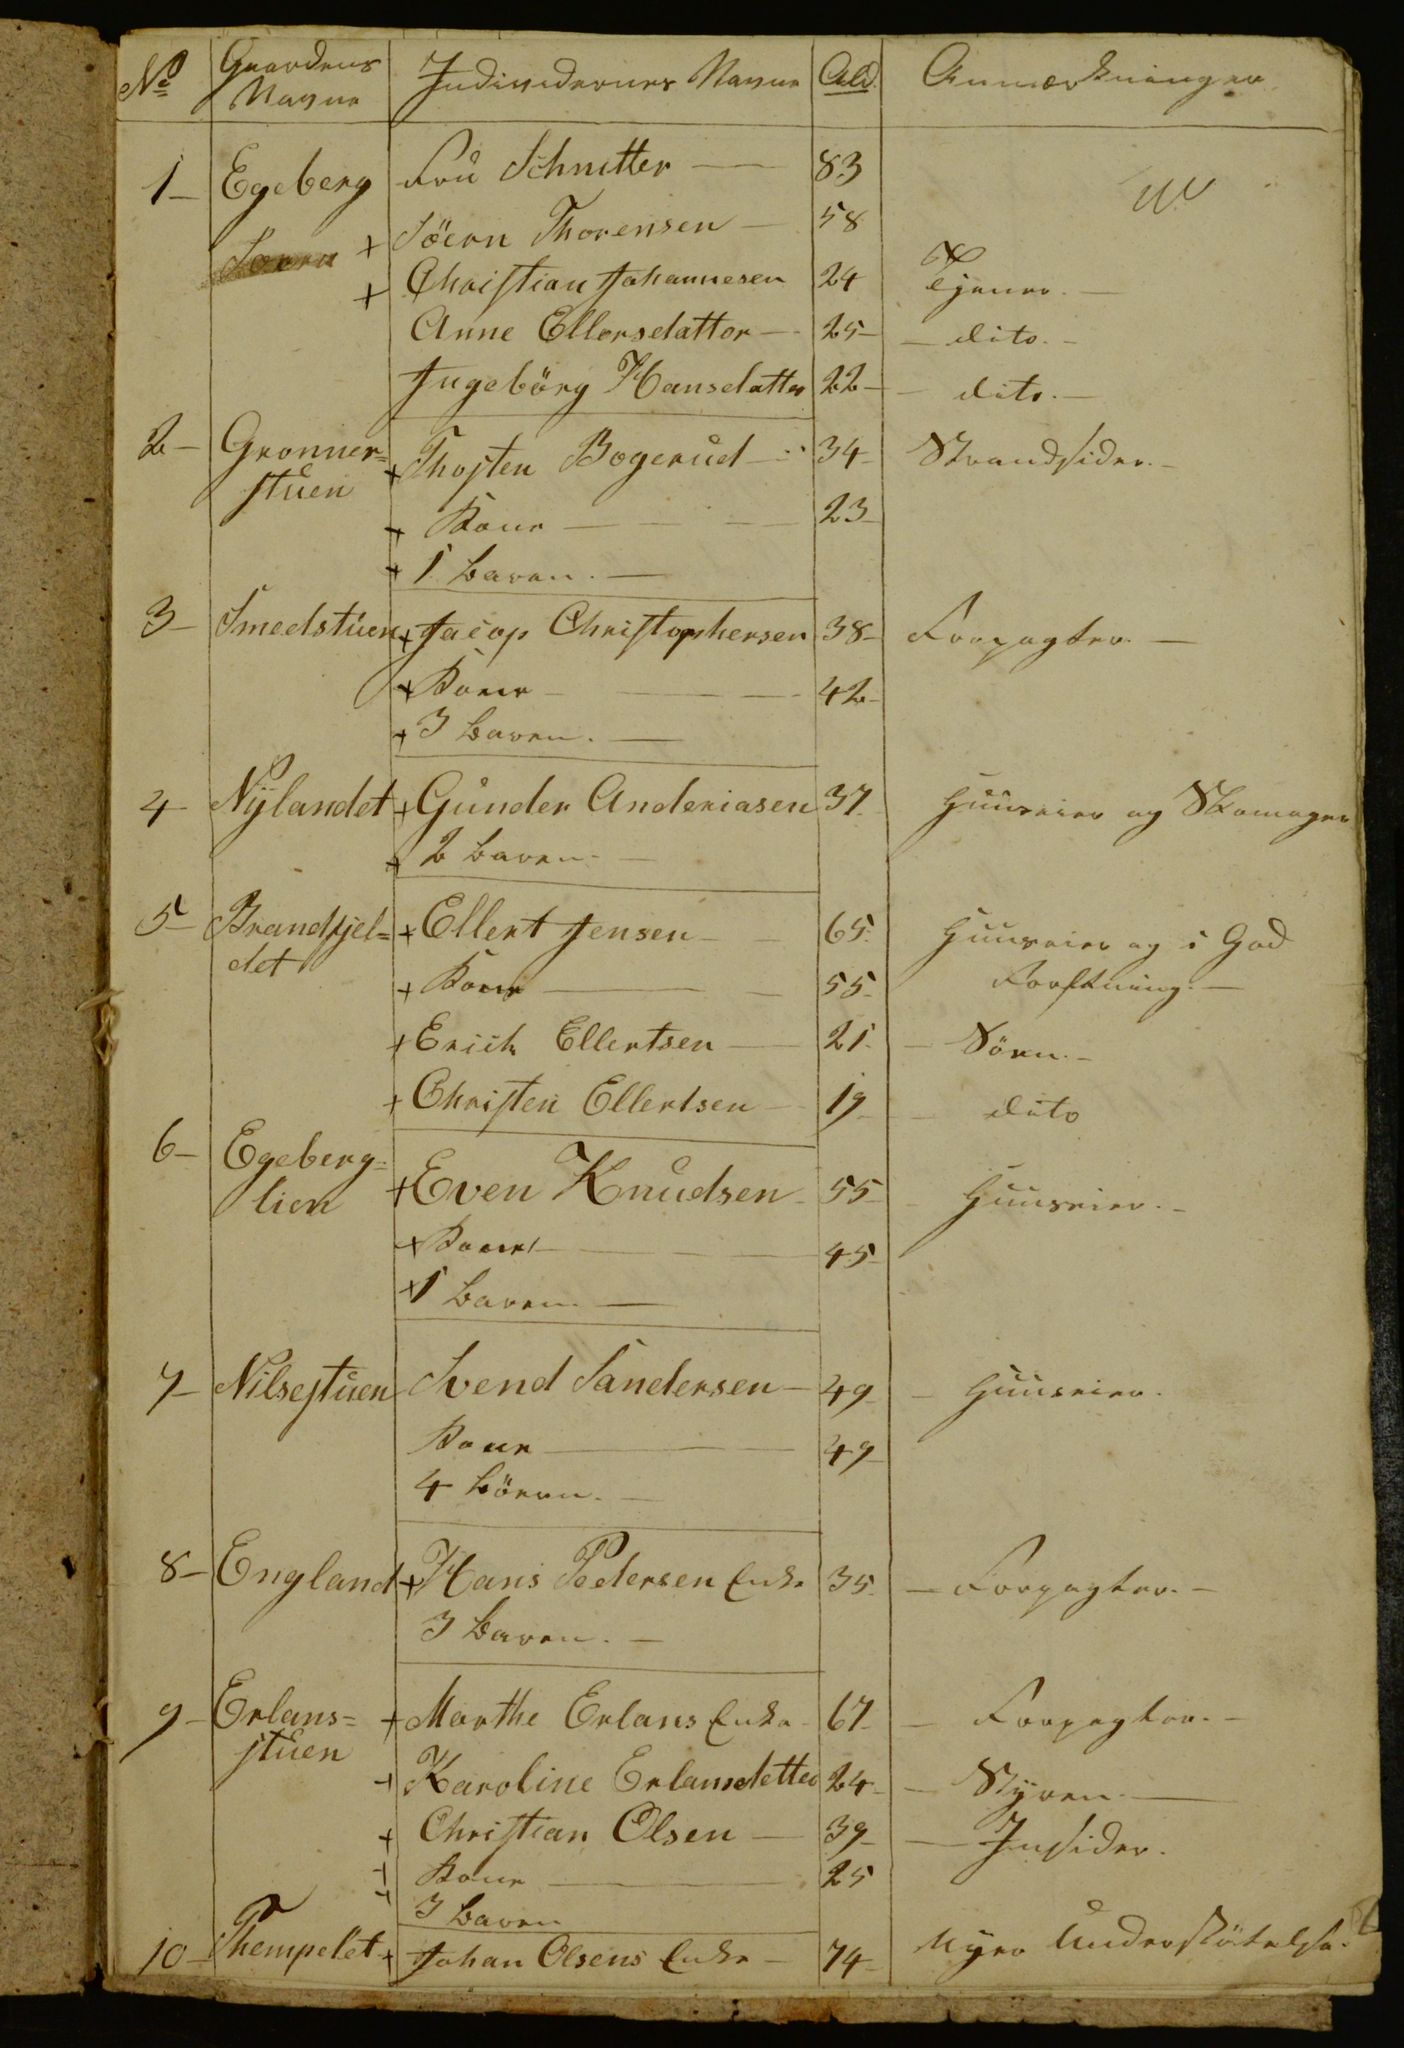 No Gaardens Navne Individernes Navne Ald. Anmærkninger
1 Egeberg Frü Schnitter 83
+ Söern Thorensen 58
+ Christian Johannesen 24 Tjener
Anne Ellersdatter 25 dito
Ingebörg Hansdatter 22 dito
2 Gronner= + Thosten Bogerüd 34 Strandsider
stüen
+ Kone 23
+ 1 Baren
3 Smedstüen + Jacop Christophersen 38 Forpagter
+ Kone 42
+ 3 Baren
4 Nÿlandet + Günder Anderiasen 37 Huuseier og Skomager
+ 2 Baren
5 Brandfjel= + Ellert Jensen 65 Huuseier og i God
det
+ Kone 55
+ Erich Ellertsen 21 Sönn
+ Christen Ellertsen 19 dito
6 Egeberg= + Even Knüdsen 55 Huuseier
lien
+ Kone 45
+ 1 Baren
7 Nilsestüen Svend Sandersen 49 Huuseier
Kone 49
4 Börn
8 England + Hans Pedersen Enke 35 Forpagter
3 Baren
9 Erlans= + Marthe Erlans Enke 67 Forpagter
stüen
+ Karoline Erlansdetter 24
+ Christian Olsen 39 Insider
+ Kone 25
3 Baren
10 Thempelet + Johan Olsens Enke 74 Nyer Understötelse